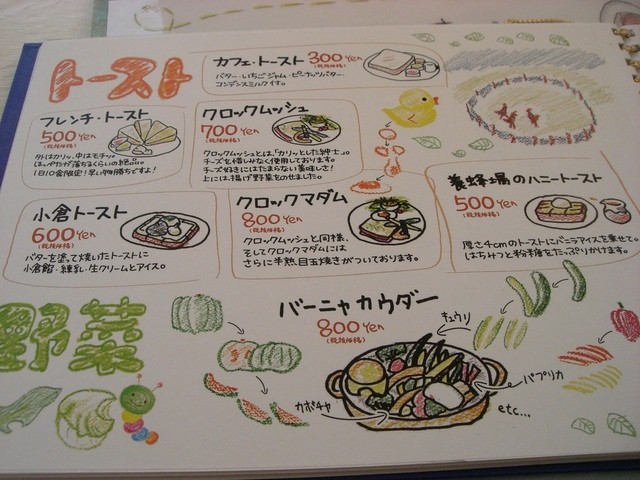 トースト
カフェ・トースト 300yen
(税抜価格)
バター・いちごジャム・ピーナッツバター・
コンデンスミルクです。
フレンチ・トースト
500yen
(税抜価格)
外はカリッ、中はモチッ。
ほっぺたが落ちるくらいの絶品。
1日10食限定!早い物勝ちですよ!
クロックムッシュ
700yen
(税抜価格)
クロックムッシュとは、「カリッとした紳士」。
チーズを惜しみなく使用しております。
チーズ好きにはたまらない美味しさ!
上には、揚げ野菜をのせました。
小倉トースト
600yen
(税抜価格)
バターを塗って焼いたトーストに
小倉餡・練乳・生クリームとアイス。
クロックマダム
800yen
(税抜価格)
クロックムッシュと同様、
そしてクロックマダムには
さらに半熟目玉焼きがついております。
養蜂場のハニートースト
500yen
(税抜価格)
厚さ4cmのトーストにバニラアイスを乗せて。
はちみつと粉糖をたっぷりかけます。
野菜
バーニャカウダー
800yen
(税抜価格)
キュウリ
パプリカ
カボチャ
etc...